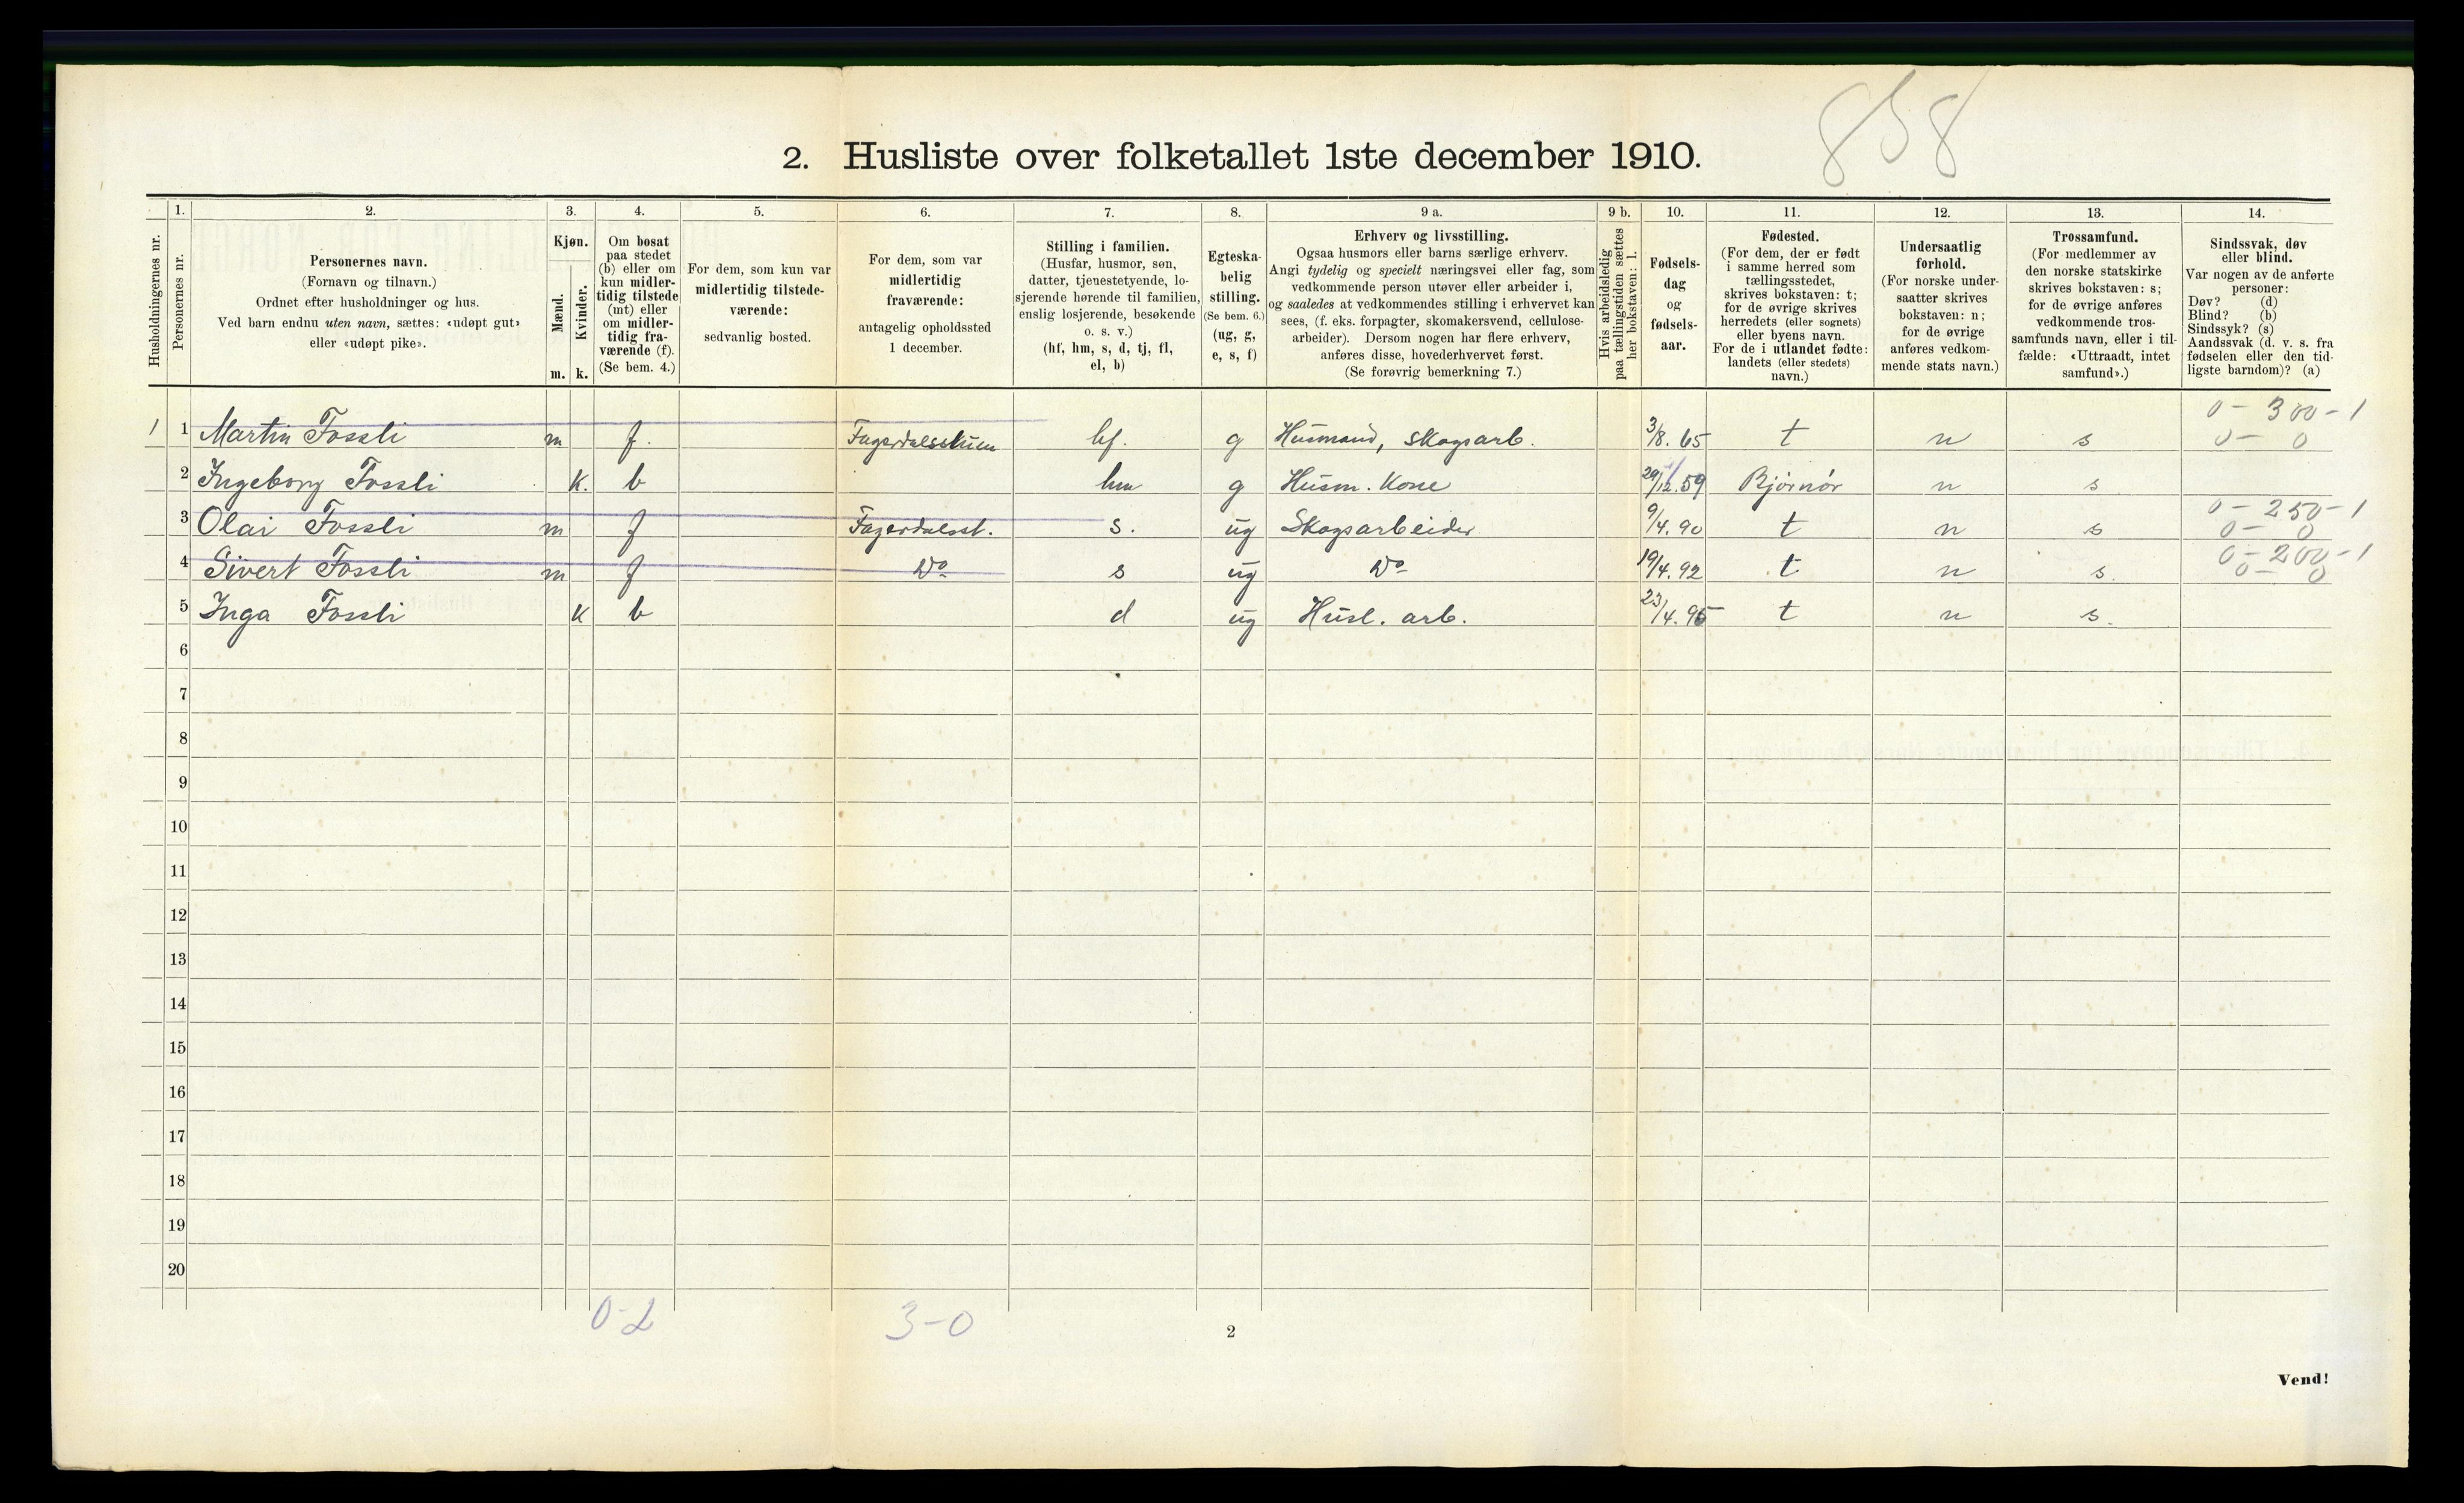 858
2. Husliste over folketallet 1ste december 1910.
Husholdningernes nr.
1.
Personernes nr.
2.
Personernes navn.
(Fornavn og tilnavn.)
Ordnet efter husholdninger og hus.
Ved barn endnu uten navn, sættes: «udøpt gut»
eller «udøpt pike».
3.
Kjøn.
Mænd.
Kvinder.
m. k.
4.
Om bosat
paa stedet
(b) eller om
kun midler-
tidig tilstede
(mt) eller
om midler-
tidig fra-
værende (f).
(Se bem. 4.)
5.
For dem, som kun var
midlertidig tilstede-
værende:
sedvanlig bosted.
6.
For dem, som var
midlertidig
fraværende:
antagelig opholdssted
1 december.
7.
Stilling i familien.
(Husfar, husmor, søn,
datter, tjenestetyende, lo-
sjerende hørende til familien,
enslig losjerende, besøkende
o. s. v.)
(hf, hm, s, d, tj, fl,
el, b)
8.
Egteska-
belig
stilling.
(Se bem. 6.)
(ug, g,
e, s, f)
9 a.
Erhverv og livsstilling.
Ogsaa husmors eller barns særlige erhverv.
Angi tydelig og specielt næringsvei eller fag, som
vedkommende person utøver eller arbeider i,
og saaledes at vedkommendes stilling i erhvervet kan
sees, (f. eks. forpagter, skomakersvend, cellulose-
arbeider). Dersom nogen har flere erhverv,
anføres disse, hovederhvervet først.
(Se forøvrig bemerkning 7.)
9 b.
Hvis arbeidsledig
paa tællingstiden sættes
her bokstaven: l.
10.
Fødsels-
dag
og
fødsels-
aar.
11.
Fødested.
(For dem, der er født
i samme herred som
tællingsstedet,
skrives bokstaven: t;
for de øvrige skrives
herredets (eller sognets)
eller byens navn.
For de i utlandet fødte:
landets (eller stedets)
navn.)
12.
Undersaatlig
forhold.
(For norske under-
saatter skrives
bokstaven: n;
for de øvrige
anføres vedkom-
mende stats navn.)
13.
Trossamfund.
(For medlemmer av
den norske statskirke
skrives bokstaven: s;
for de øvrige anføres
vedkommende tros-
samfunds navn, eller i til-
fælde: «Uttraadt, intet
samfund».)
14.
Sindssvak, døv
eller blind.
Var nogen av de anførte
personer:
Døv? (d)
Blind? (b)
Sindssyk? (s)
Aandssvak (d. v. s. fra
fødselen eller den tid-
ligste barndom)? (a)
0 - 300 - 1
1 1 Martin Fossli m f. hf. g Husmand, skogsarb. 3/8. 65 t n s 0 - 0
2 Ingeborg Fossli k. b hm g Husm. Kone 29/12. 59 Bjørnør n s
0 - 250 - 1
3 Olai Fossli m f Fagerdalsst. s. ug Skogsarbeider 9/4. 90 t n s 0 - 0
0 - 200 - 1
4 Sivert Fossli m f Do s ug Do 19/4. 92 t n s. 0 - 0
5 Inga Fossli k b d ug Husl. arb. 23/4. 95 t n s.
6
7
8
9
10
11
12
13
14
15
16
17
18
19
20
0-2 3-0
2
Vend!